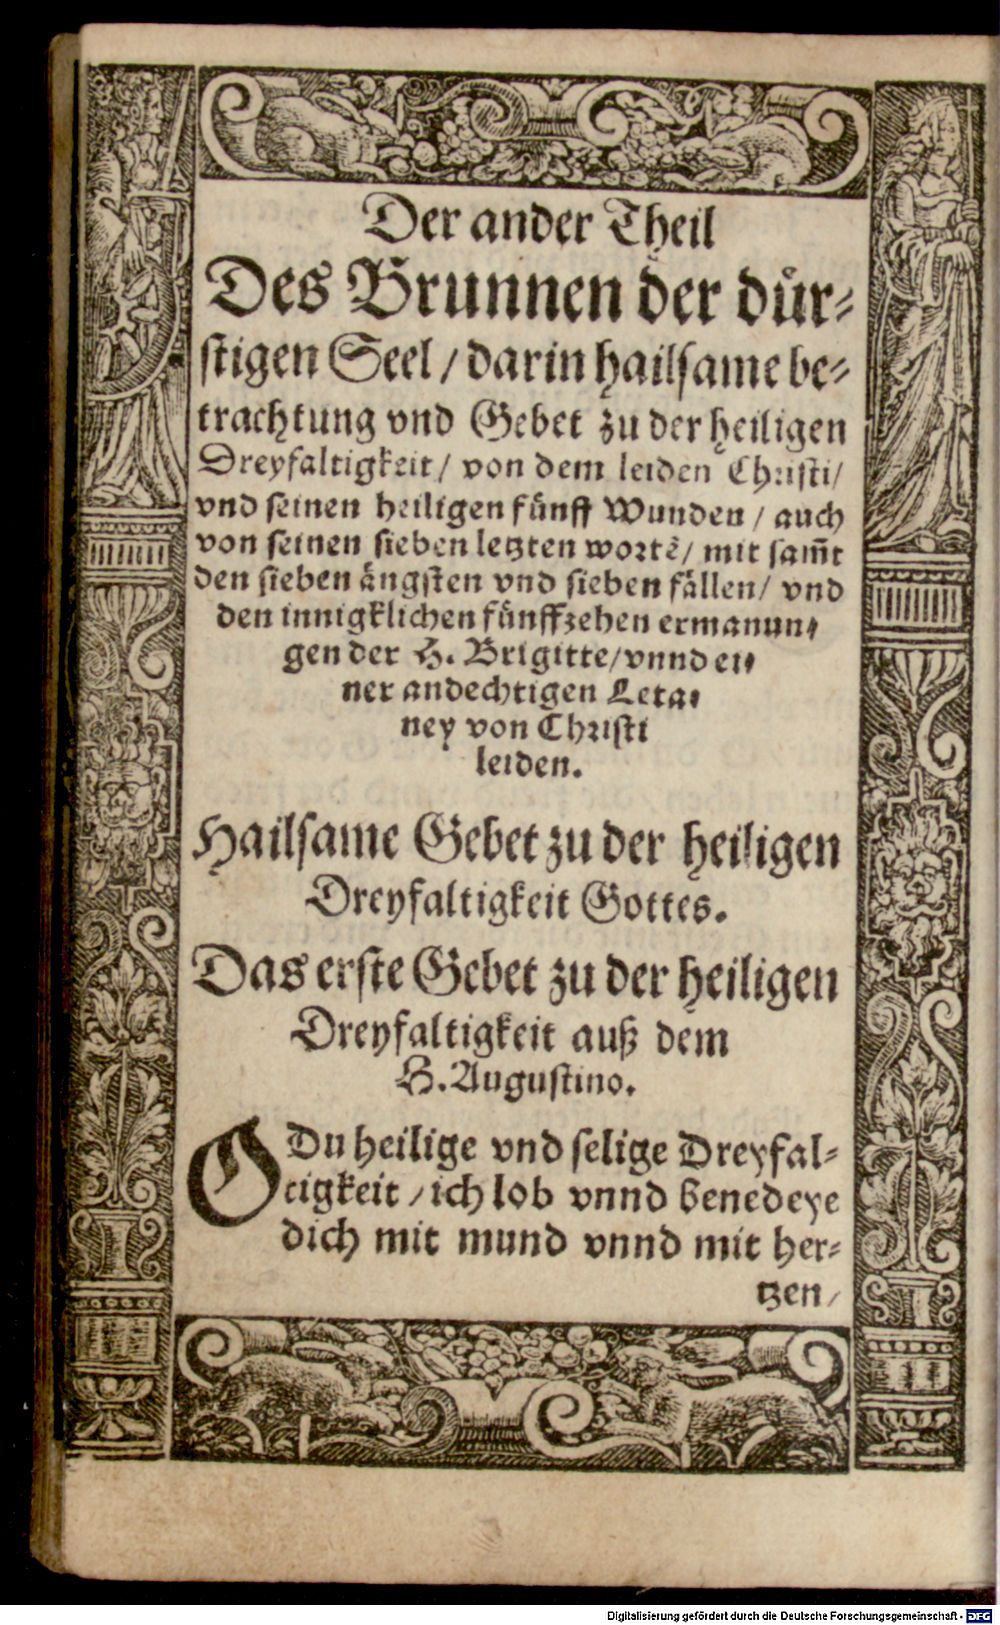 Der ander Theil
Des Brunnen der dürſtigen
ſtigen Seel / darin hailſame be⸗
trachtung vnd Gebet zu der heiligen
Dreyfaltigkeit / von dem leiden Chriſti /
vnd ſeinen heiligen fünff Wunden / auch
von ſeinen ſieben letzten wortẽ / mit ſam̃t
den ſieben ängſten vnd ſieben fällen / vnd
den innigklichen fünffzehen ermanun⸗
gen der H. Brigitte / vnnd ei⸗
ner andechtigen Leta⸗
ney von Chriſti
leiden.
Hailſame Gebet zu der heiligen
Dreyfaltigkeit Gottes.
Das erſte Gebet zu der heiligen
Dreyfaltigkeit auß dem
H. Auguſtino.
O Du heilige vnd ſelige Dreyfal⸗
tigkeit / ich lob vnnd benedeye
dich mit mund vnnd mit her⸗
tzen /
Digitalisierung gefördert durch die Deutsche Forschungsgemeinschaft - DFG